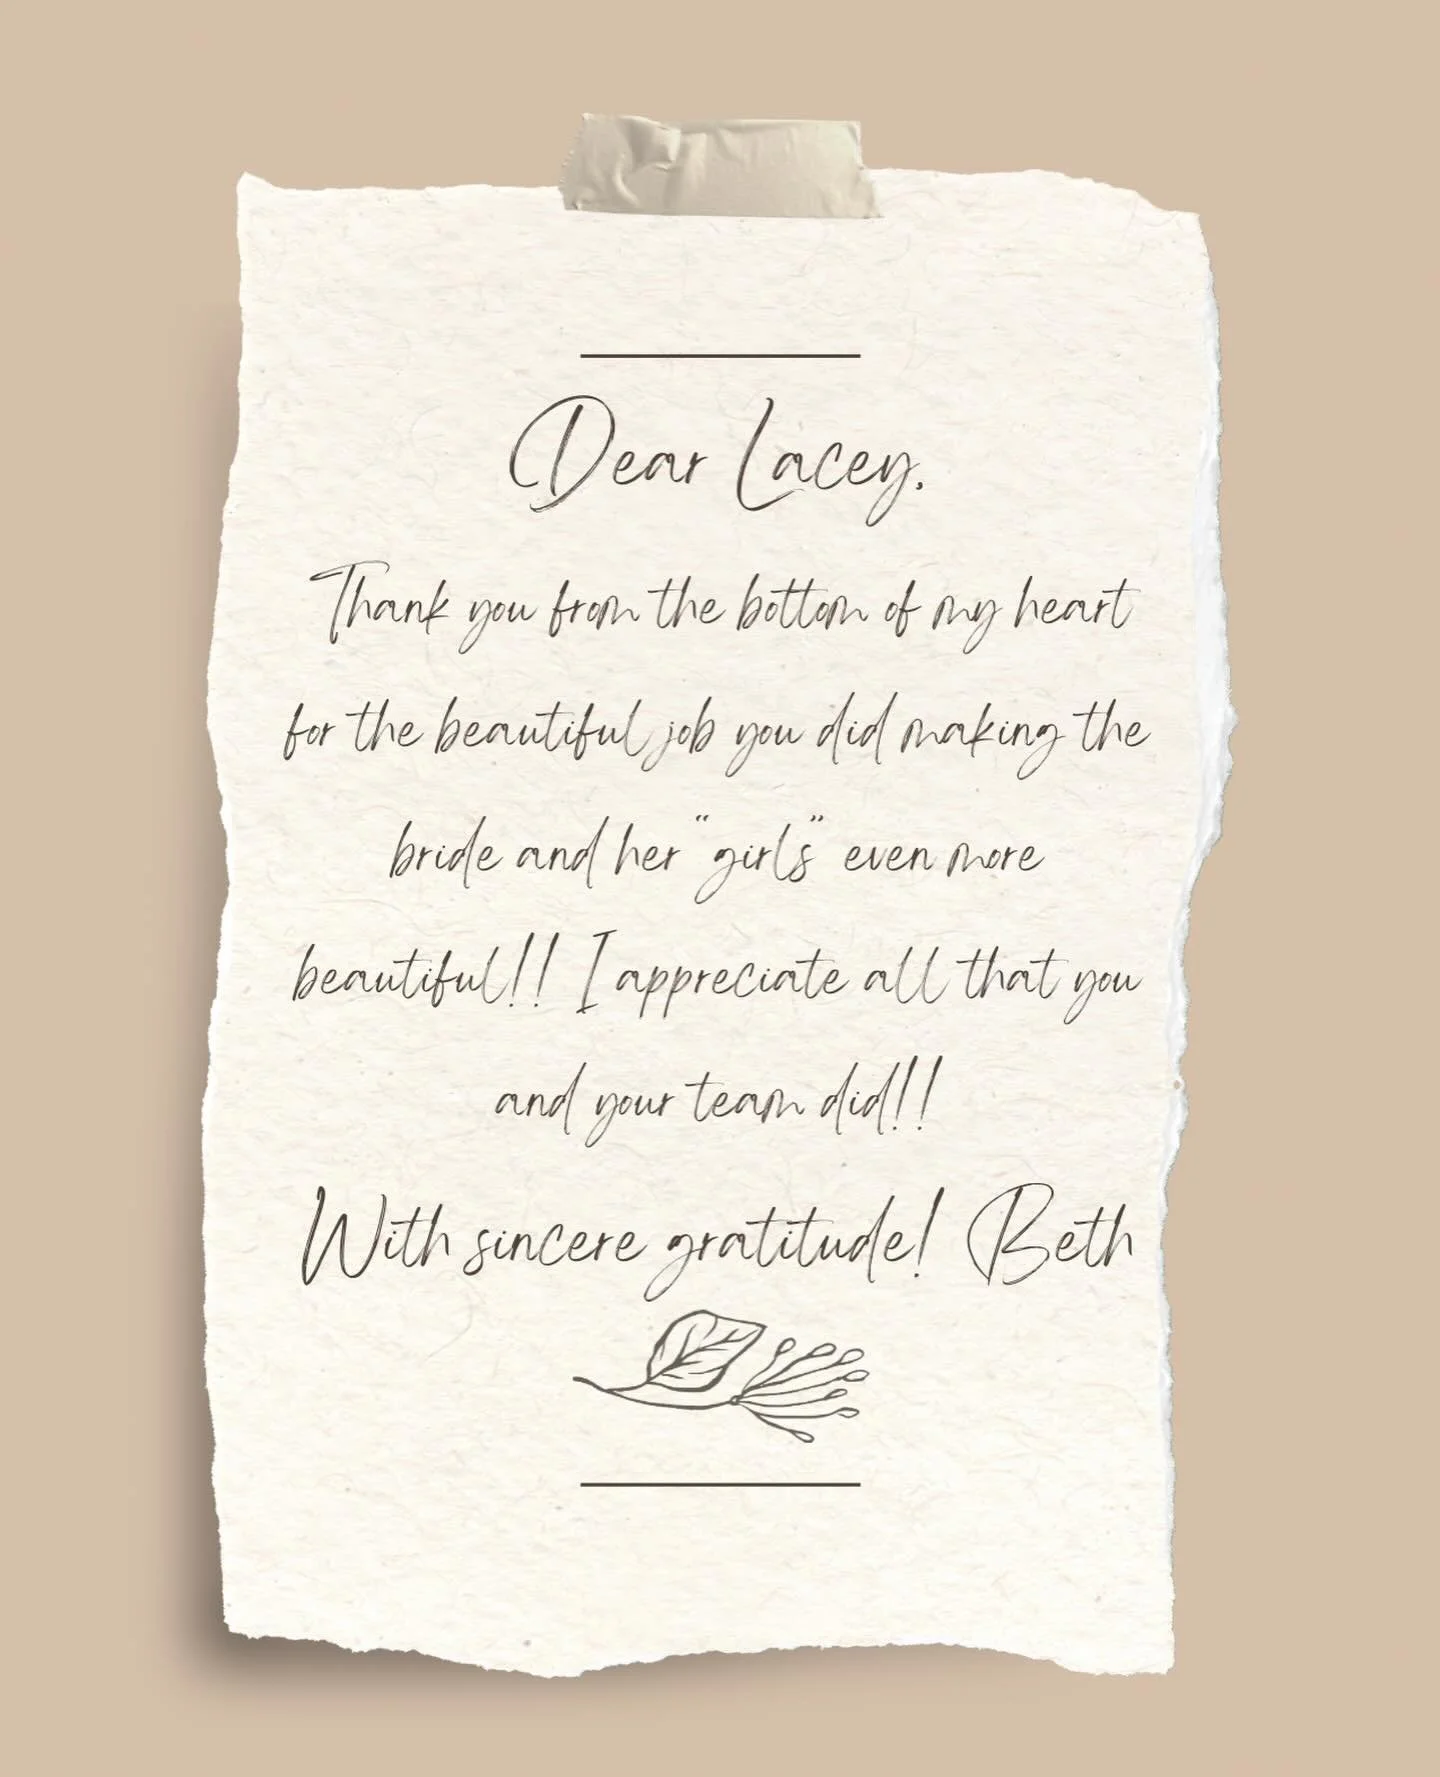 Dear Lacey,
Thank you from the bottom of my heart
for the beautiful job you did making the
bride and her "girls" even more
beautiful!! I appreciate all that you
and your team did!!
With sincere gratitude! Beth